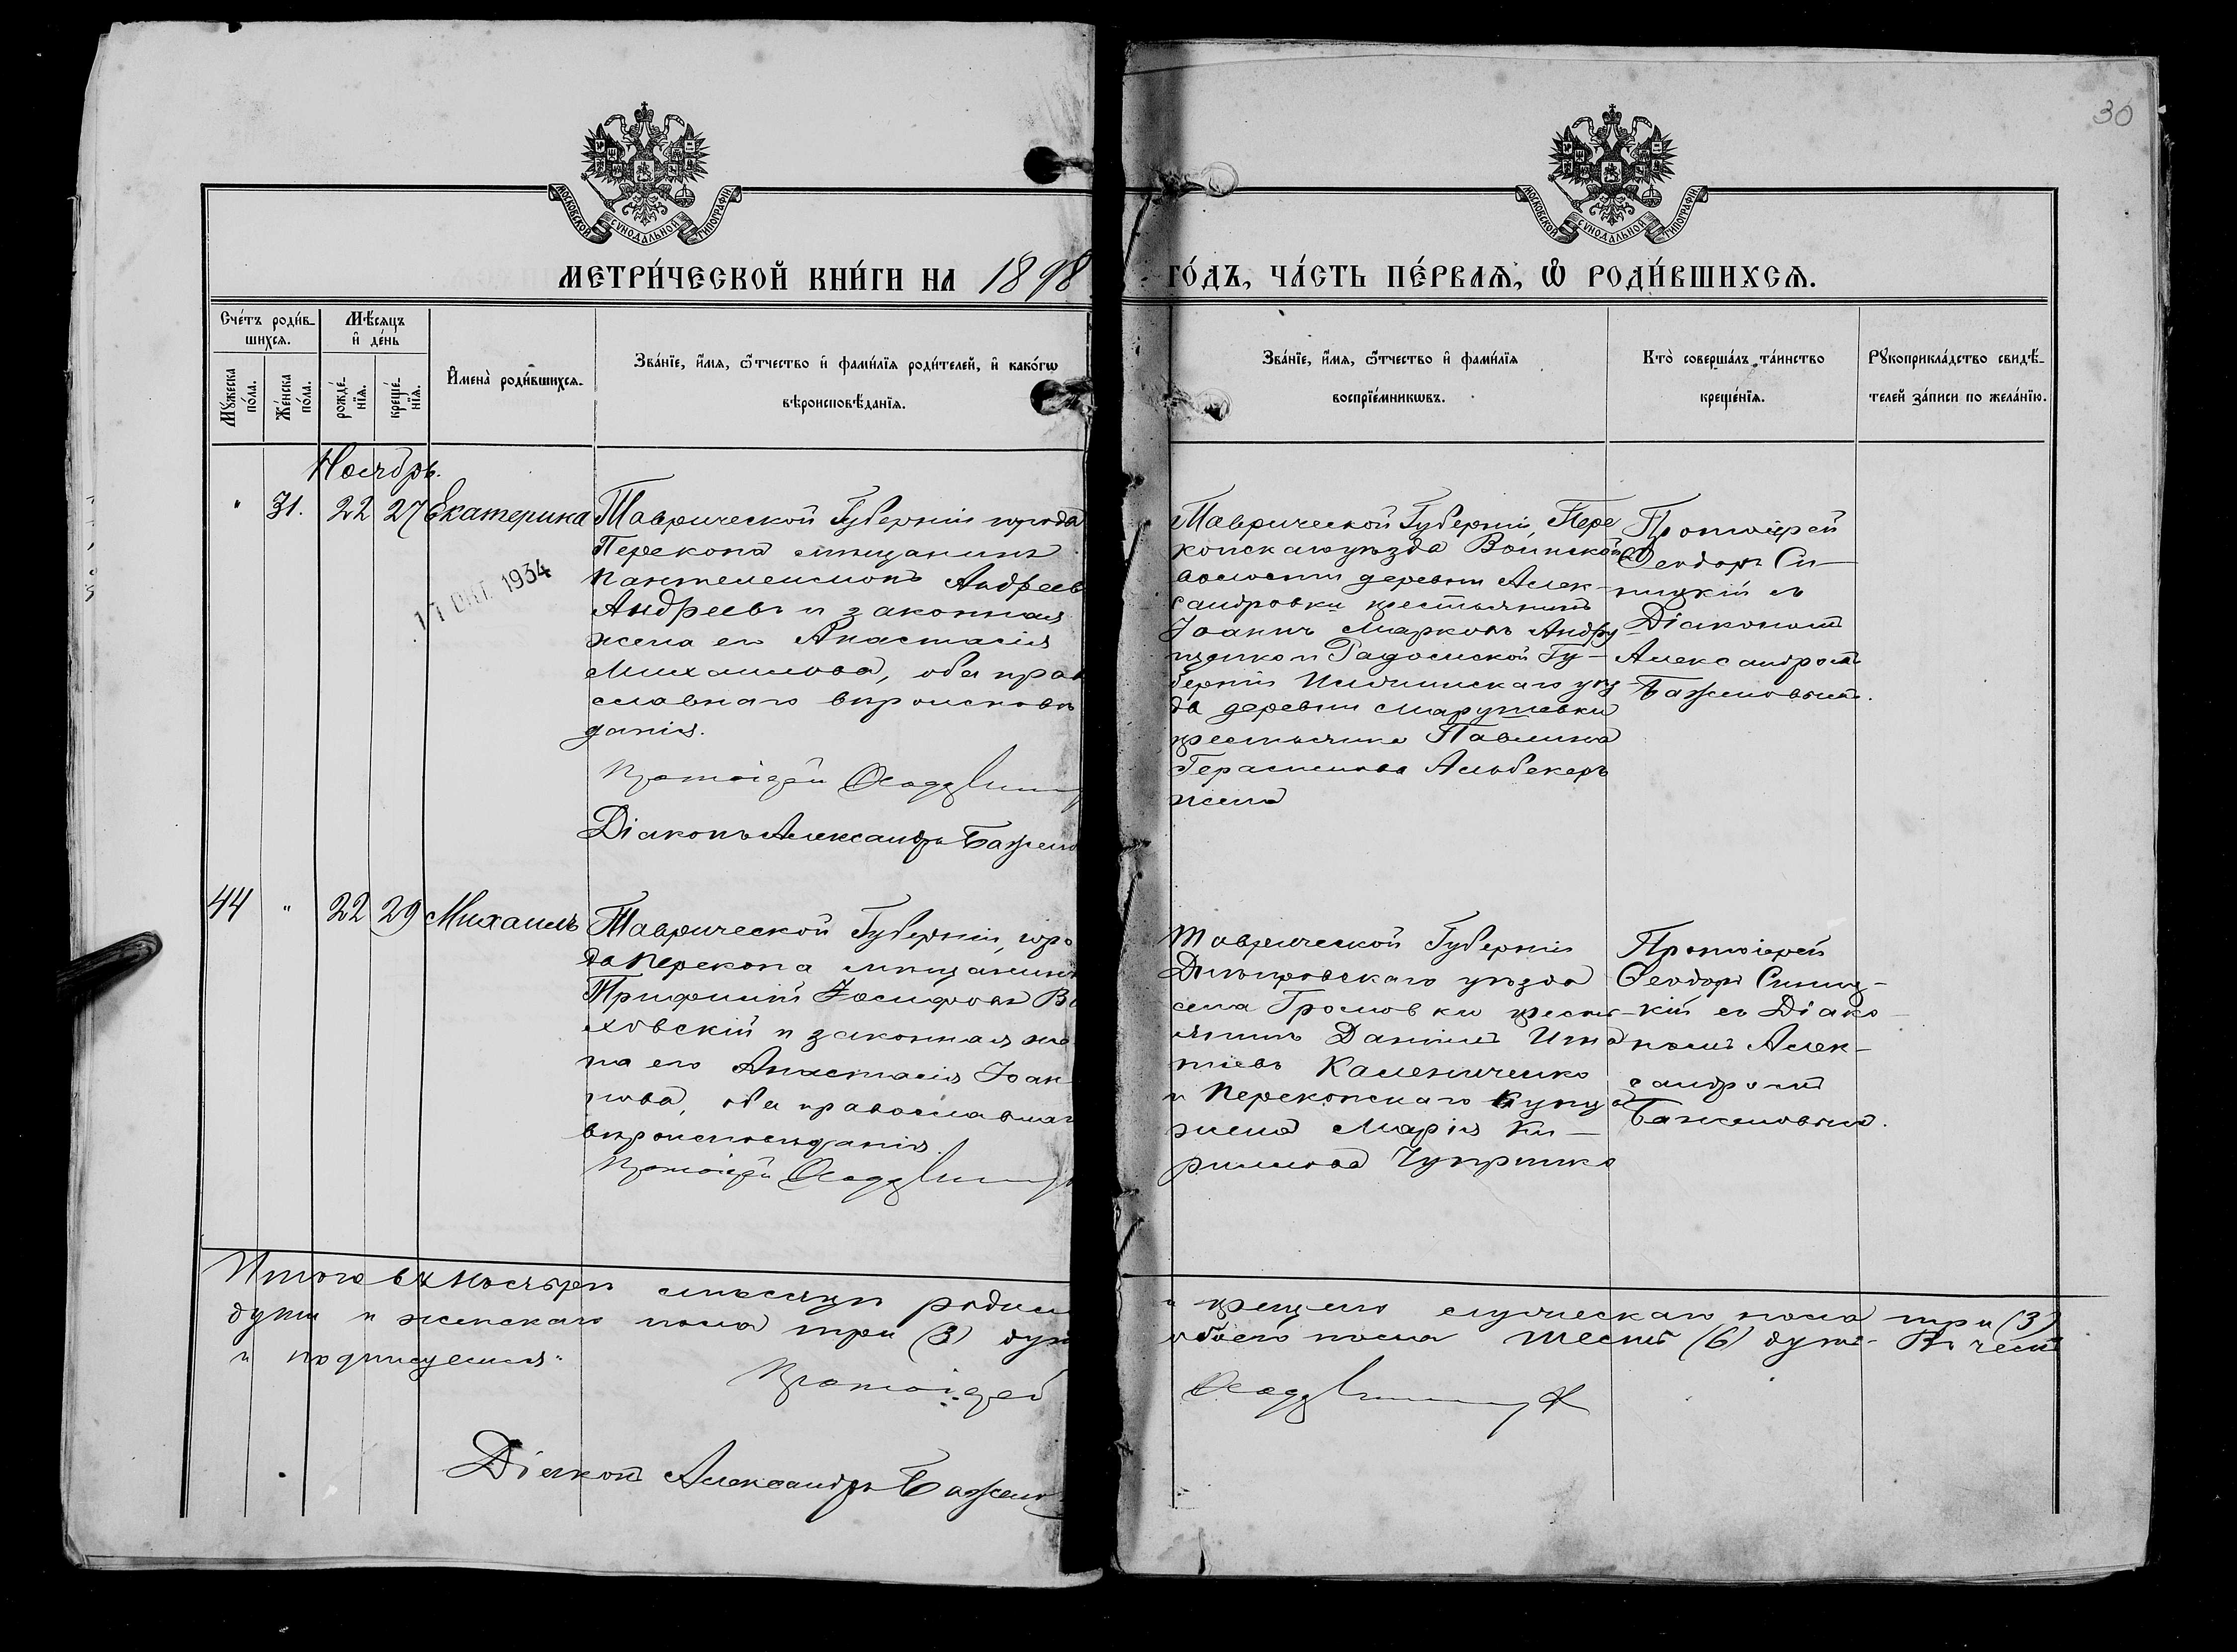 30
МОСКОВСКОЙ СѴНОДАЛЬНОЙ ТИПОГРАФІИ
МОСКОВСКОЙ СѴНОДАЛЬНОЙ ТИПОГРАФІИ
МЕТРИ́ЧЕСКОЙ КНИ́ГИ НА 1898
ГО́ДЪ, ЧА́СТЬ ПЕ́РВАѦ, Ѡ҆ РОДИ́ВШИХСѦ.
Сче́тъ роди́в-
шихсѧ.
Мꙋ́жеска
по́ла.
Же́нска
по́ла.
Мѣ́сѧцъ
и҆ де́нь
рожде́-
нїѧ.
креще́-
нїѧ.
И҆мена̀ роди́вшихсѧ.
Зва́нїе, и҆́мѧ, ѻ҆́тчество и҆ фами́лїѧ роди́телей, и҆ како́гѡ
вѣроисповѣ́данїѧ.
Зва́нїе, и҆́мѧ, ѻ҆́тчество и҆ фами́лїѧ
воспрїе́мникѡвъ.
Кто̀ соверша́лъ та́инство
креще́нїѧ.
Рꙋкоприкла́дство свидѣ́-
телей за́писи по жела́нїю.
Ноябрь.
" 31. 22 27 Екатерина
17 ОКТ. 1934
Таврической Губерніи города
Перекопа мѣщанинъ
Пантелеимонъ Андреевъ
Андреевъ и законная
жена его Анастасія
Михаилова, оба прав
славнаго вѣроисповѣ
данія.
Протоіерей
Діаконъ Александръ Бажено
Таврической Губерніи, Пере
копскаго уѣзда Воинской
волости деревни Алек-
сандровки крестьянинъ
Іоаннъ Марковъ Андру
щенко и Радомской Гу-
берніи уѣз
да деревни Марушевки
крестьянина Павлина
Герасимова
жена
Протоіерей
Ѳеодоръ Си-
ницкій съ
Діакономъ
Александромъ
Баженовымъ.
44 " 22 29 Михаилъ
Таврической Губерніи, горо
да Перекопа мѣщанинъ
Трифилій Іосифовъ В
ховскій и законная же
на его Анастасія Іоан
нова, оба православнаг
вѣроисповѣданія.
Протоіерей
Таврической Губерніи
Днѣпровскаго уѣзда
села Громовки кресть-
янинъ Даніилъ Игна
тіевъ Калениченко
и Перекопскаго купца
жена Марія Ки-
риллова Чупринка
Протоіерей
Ѳеодоръ Синиц-
кій съ Діако-
номъ Алек-
сандромъ
Баженовымъ.
Итого въ Ноябрѣ мѣсяцѣ родил
души и женскаго пола три (3) душ
и подписуемся.
и крещено мужескаго пола три (3)
обоего пола шесть (6) душъ. Въ чемъ
Протоіерей
Діаконъ Александръ Бажено